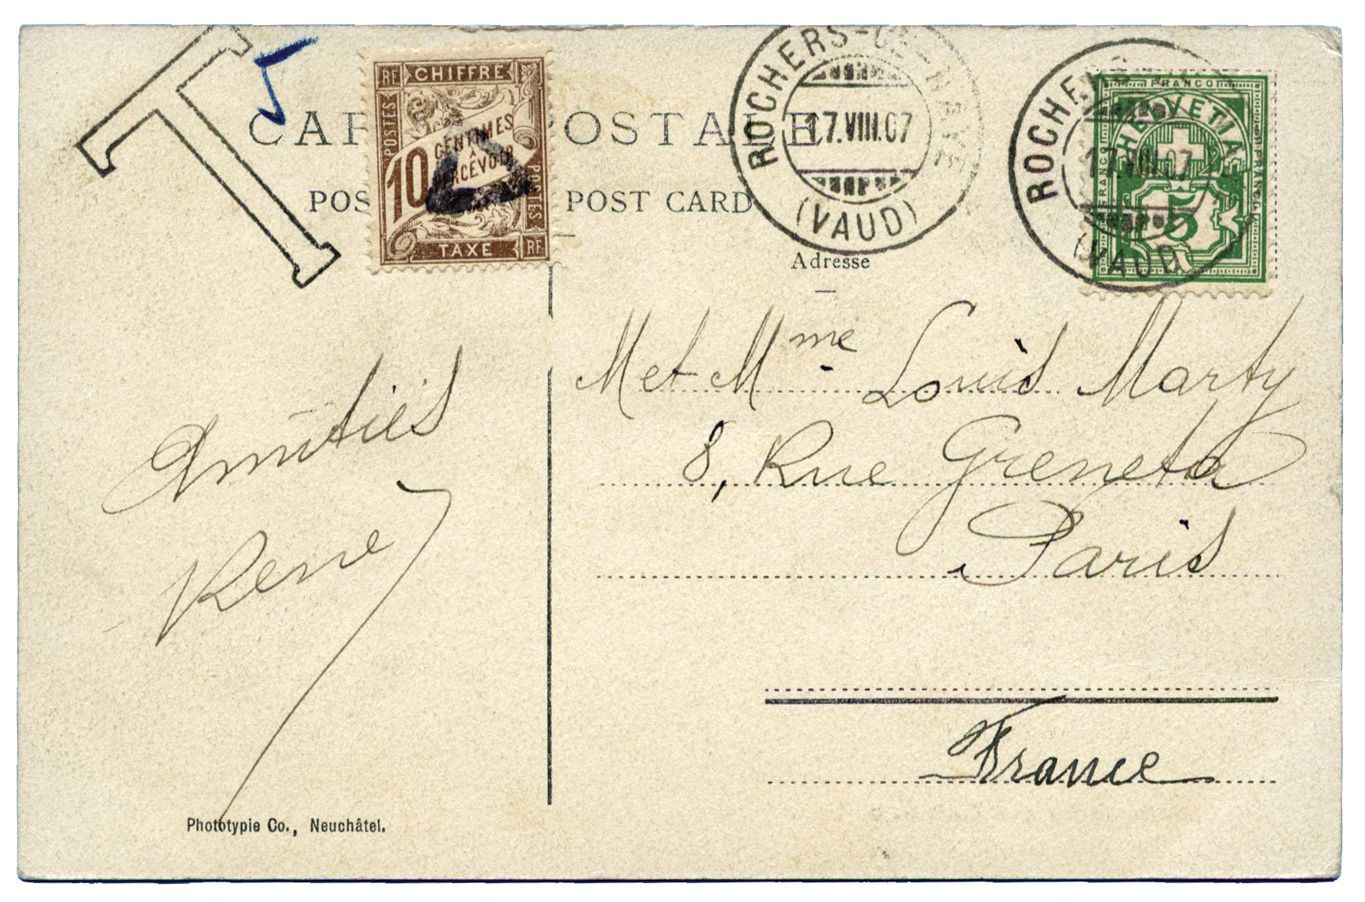 T 5
CARTE POSTALE
POST CARD
RF CHIFFRE
POSTES
10 CENTIMES
À
PERCEVOIR
POSTES
TAXE RF
ROCHERS-DE-NAYE
17.VIII.07
(VAUD)
ROCHERS
17.VIII.07
(VAUD)
FRANCO
HELVETIA
FRANCO
FRANCO
5
Adresse
M et Mme Louis Marty
8, Rue Greneta
Paris
France
Amitiés
René
Phototypie Co., Neuchâtel.